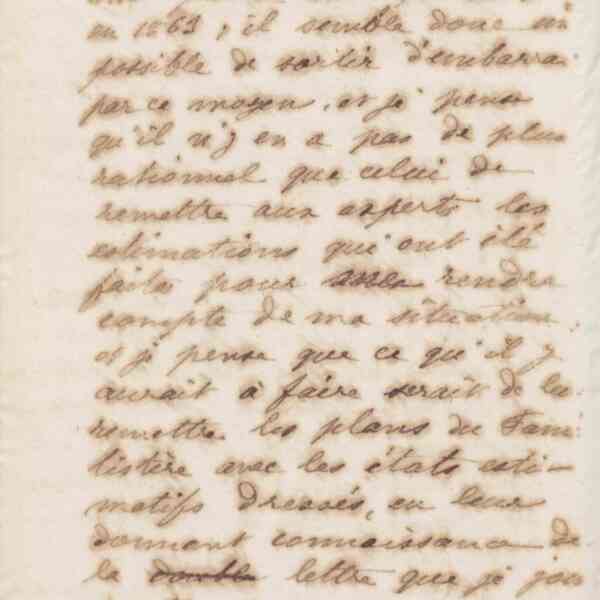 en 1863, il semble donc im
possible de sortir d'embarras
par ce moyen, et je pense
qu'il n'y en a pas de plus
rationnel que celui de
remettre aux experts les
estimations qui ont été
faites pour rendre
compte de ma situation,
et je pense que ce qu'il y
aurait à faire serait de leur
remettre les plans du Fami
listère avec les états esti-
matifs dressés, en leur
donnant connaissance de
la double lettre que je